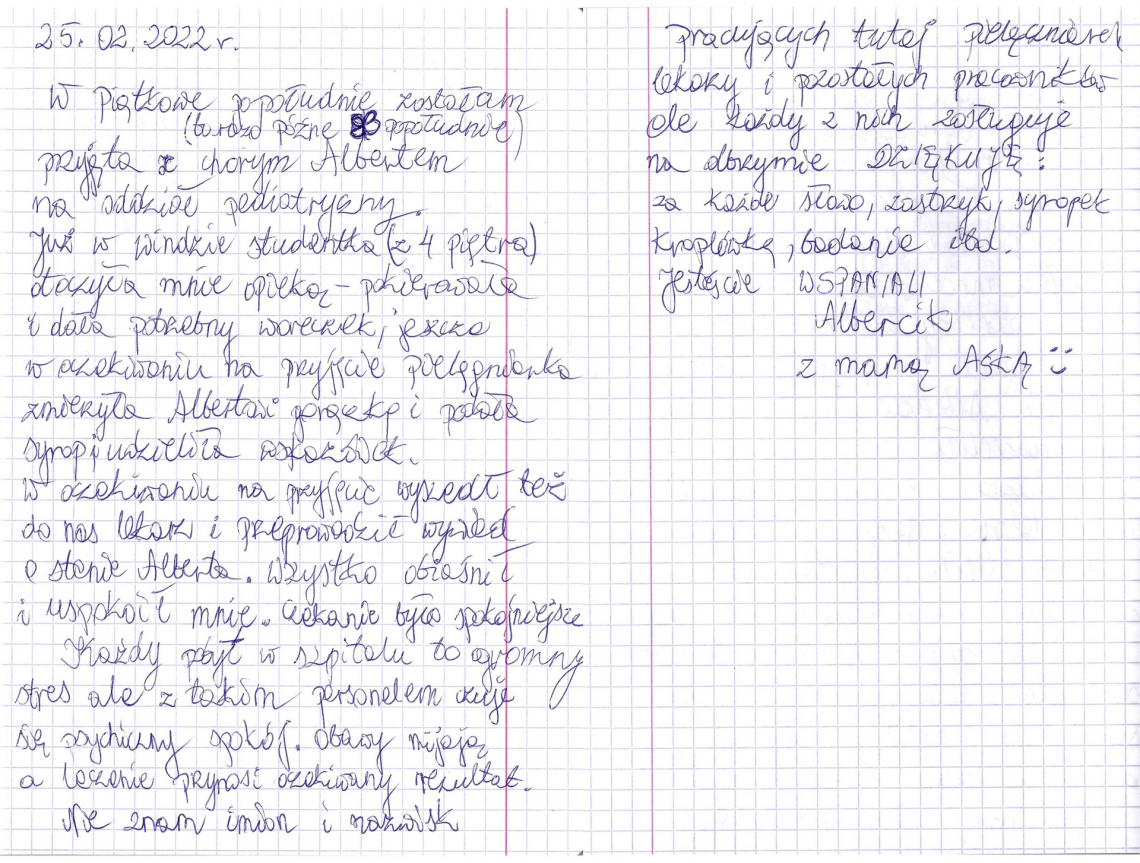 25.02.2022 r.
W piątkowe popołudnie zostałam
(bardzo późne popołudnie)
przyjęta z chorym Albertem
na oddział pediatryczny.
Już w windzie studentka (z 4 piętra)
otoczyła mnie opieką - pokierowała
i dała potrzebny woreczek, jeszcze
w oczekiwaniu na przyjęcie pielęgniarka
zmierzyła Albertowi gorączkę i podała
syrop i udzieliła wskazówek.
W oczekiwaniu na przyjęcie wyszedł też
do nas lekarz i przeprowadził wywiad
o stanie Alberta. Wszystko objaśnił
i uspokoił mnie. Czekanie było spokojniejsze
Każdy pobyt w szpitalu to ogromny
stres ale z takim personelem czuje
się psychiczny spokój. Obawy mijają
a leczenie przynosi oczekiwany rezultat.
Nie znam imion i nazwisk
pracujących tutaj pielęgniarek
lekarzy i pozostałych pracowników
ale każdy z nich zasługuje
na olbrzymie DZIĘKUJĘ:
za każde słowo, zastrzyk, syropek
kroplówkę, badanie itd.
Jesteście WSPANIALI
Albercik
z mamą ASKĄ :)